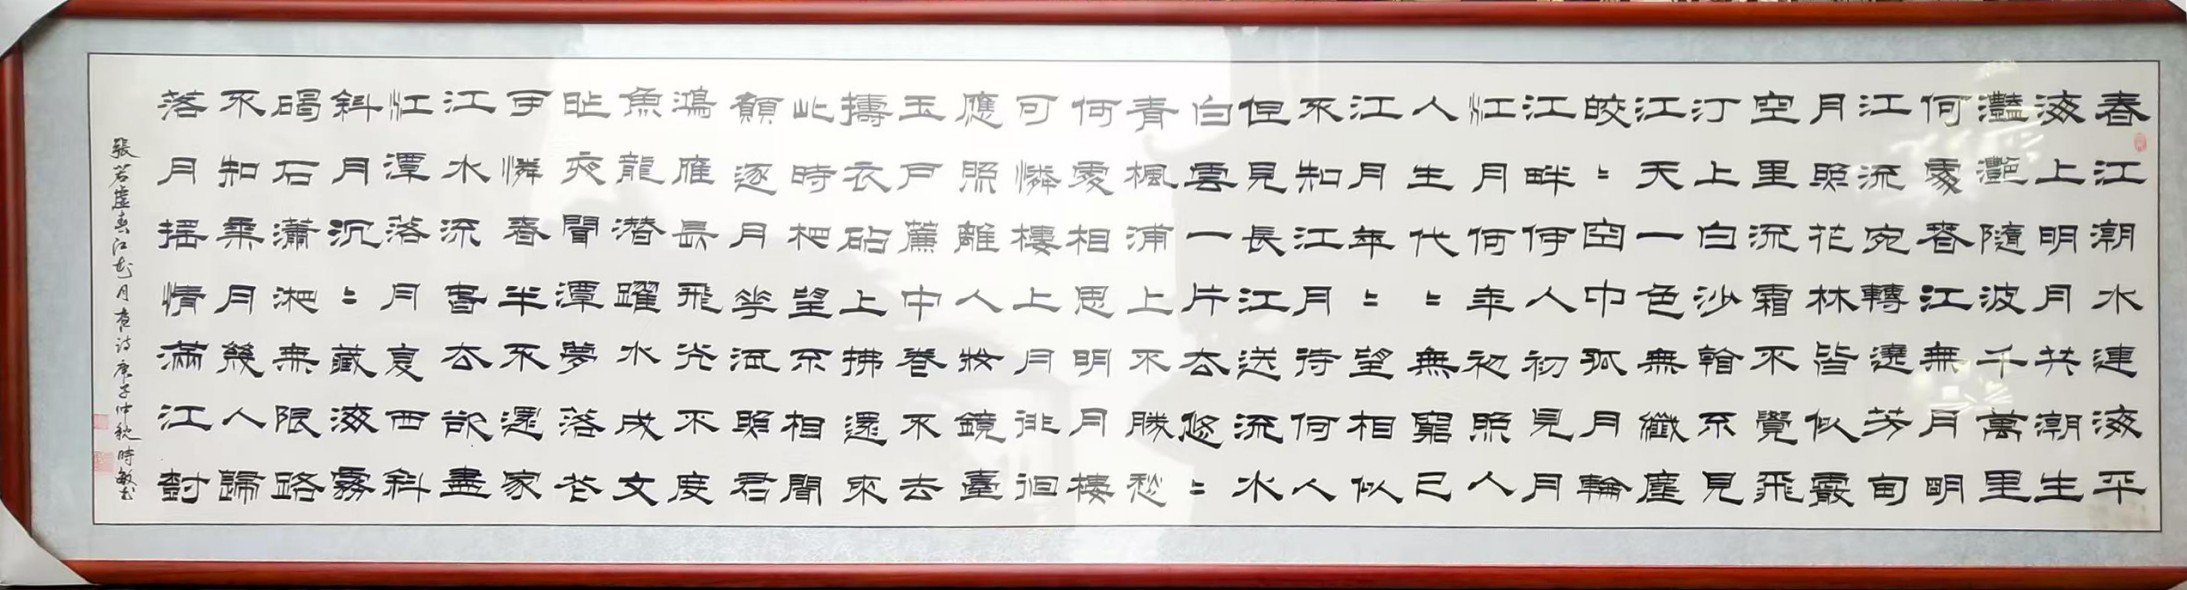 春江潮水連海平
海上明月共潮生
灩灩隨波千萬里
何處春江無月明
江流宛轉遶芳甸
月照花林皆似霰
空里流霜不覺飛
汀上白沙看不見
江天一色無纖塵
皎〻空中孤月輪
江畔何人初見月
江月何年初照人
人生代〻無窮已
江月年〻望相似
不知江月待何人
但見長江送流水
白雲一片去悠〻
青楓浦上不勝愁
何處相思明月樓
可憐樓上月徘徊
應照離人妝鏡臺
玉戶簾中卷不去
擣衣砧上拂還來
此時相望不相聞
願逐月華流照君
鴻雁長飛光不度
魚龍潛躍水成文
昨夜聞潭夢落花
可憐春半不還家
江水流春去欲盡
江潭落月復西斜
斜月沉〻藏海霧
碣石瀟湘無限路
不知乘月幾人歸
落月搖情滿江樹
張若虛春江花月夜詩庚子仲秋時敏书